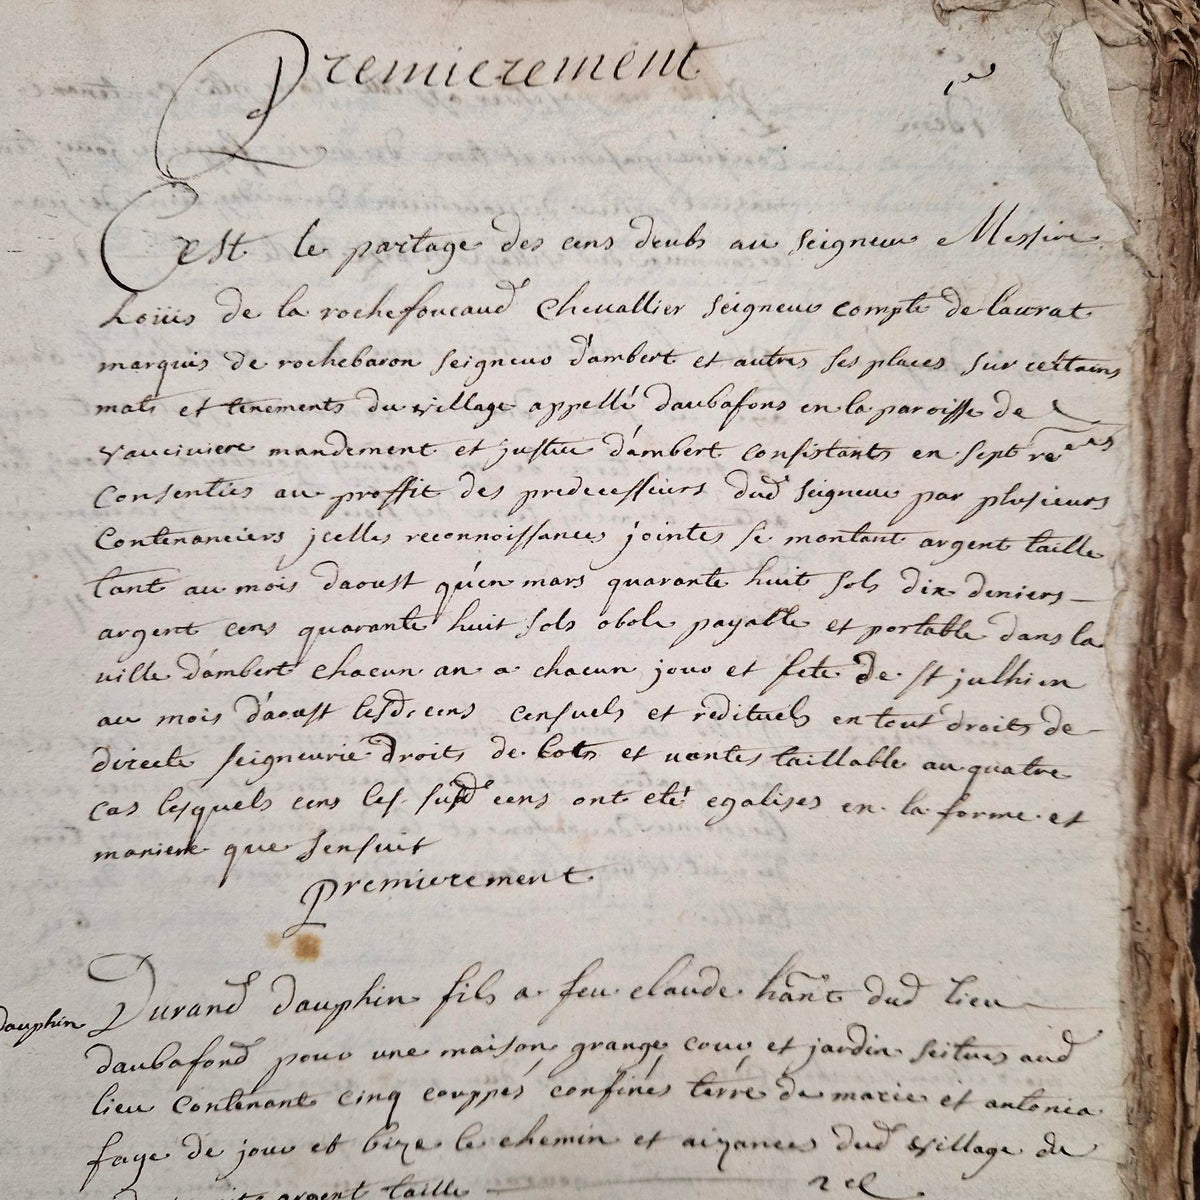 Premierement
Cest le partage des cens deubs au seigneur Messire
Loüis de la rochefoucaud chevallier seigneur compte de laurat
marquis de rochebaron seigneur d'ambert et autres ses places sur certains
mas et tenements du village appellé daubafons en la paroisse de
vauciviere mandement et justice d'ambert consistants en sept rec.ces
consenties au proffit des predecesseurs dud seigneur par plusieurs
contenanciers jcelles reconnoissances jointes se montant argent taille
tant au mois daoust qu'en mars quarante huit sols dix deniers
argent cens quarante huit sols obole payable et portable dans la
ville d'ambert chacun an a chacun jour et fete de st julhien
au mois d'aoust lesd. cens censuels et redituels en tout droits de
directe seigneurie droits de lots et vantes taillable au quatre
cas lesquels cens les susd cens ont eté egalises en la forme et
maniere que sensuit
premierement
dauphin
Durand dauphin fils a feu claude hant dud lieu
daubafond pour une maison grange cour et jardin seitues aud
lieu contenant cinq couppés confinés terre de marie et antonia
faye de jour et bize le chemin et aizances dud village de
argent taille